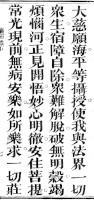 大慈願海平等攝授使我與法界一切
衆生宿障自除衆難解脫破無明殼竭
煩惱河正見開悟妙心明徹安住菩提
常光現前無病安樂如所樂求一切莊